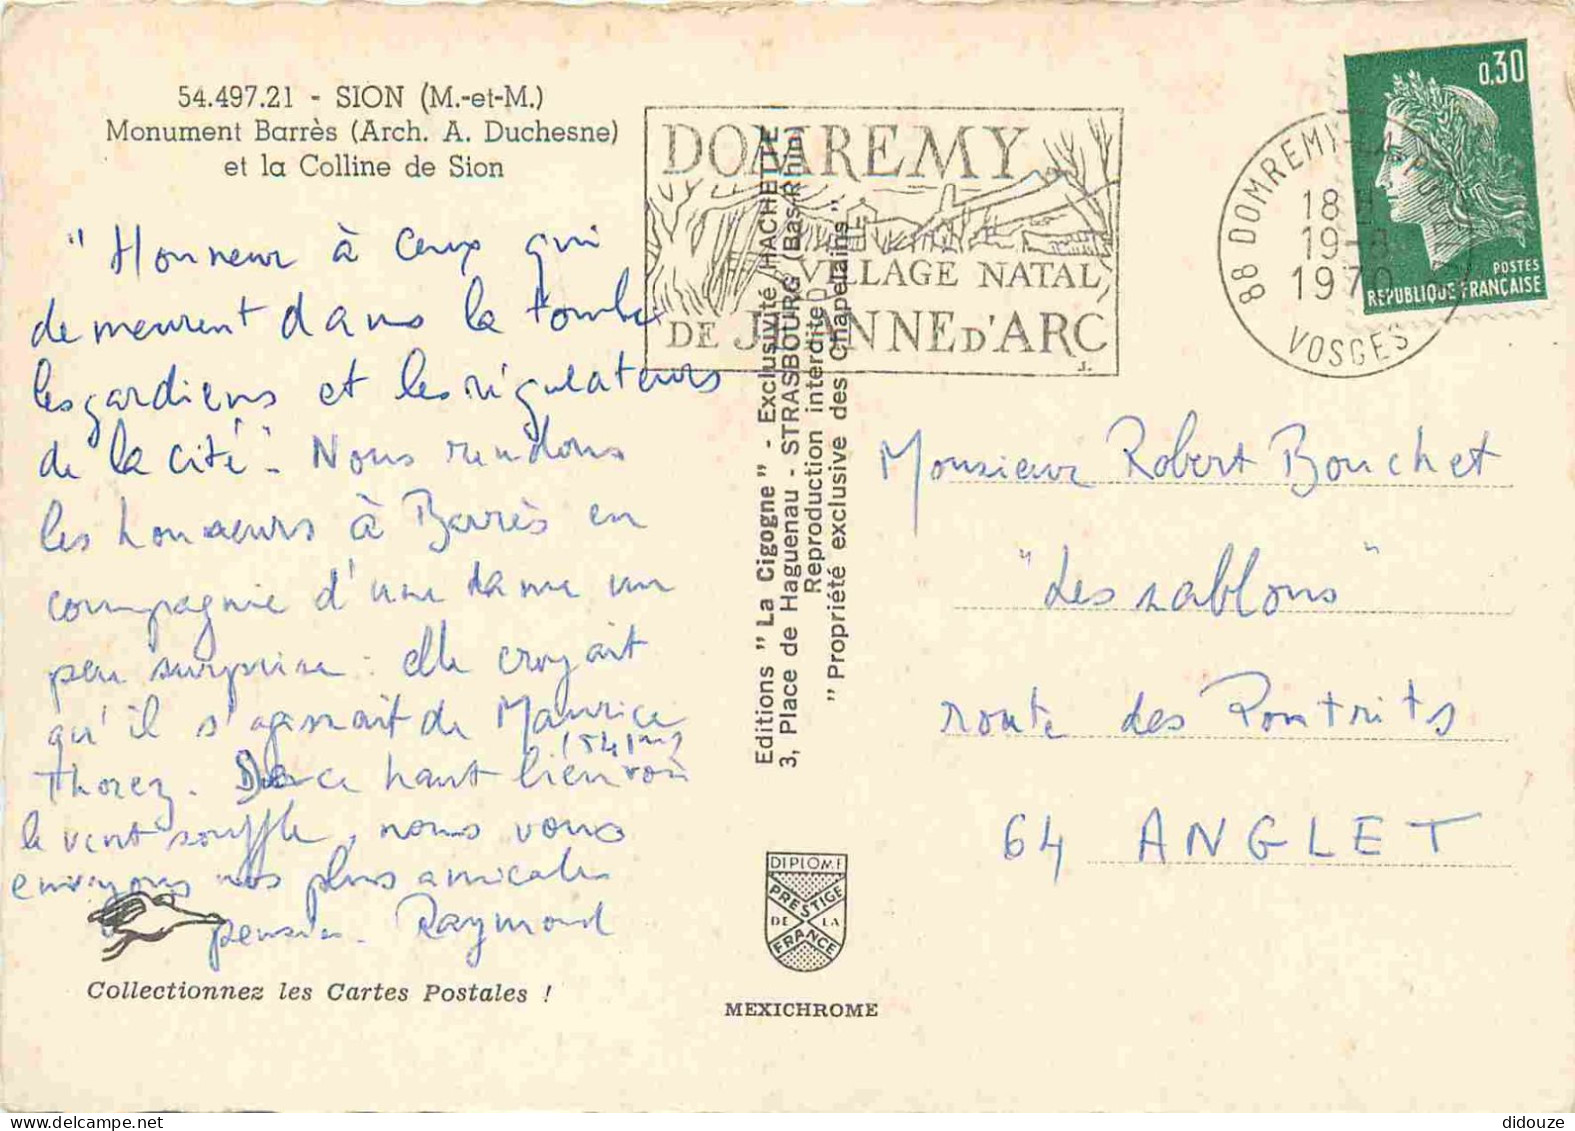 54.497.21 - SION (M.-et-M.)
Monument Barrès (Arch. A. Duchesne)
et la Colline de Sion
"Honneur à ceux qui
demeurent dans la tombe
les gardiens et les régulateurs
de la cité". Nous rendons
les honneurs à Barrès en
compagnie d'une dame un
peu surprise : elle croyait
qu'il s'agissait de Maurice
Thorez. De ce haut lieu où
(541m)
le vent souffle, nous vous
envoyons nos plus amicales
pensées. Raymond
Collectionnez les Cartes Postales !
Editions " La Cigogne " - Exclusivité HACHETTE
3, Place de Haguenau - STRASBOURG (Bas-Rhin)
Reproduction interdite
" Propriété exclusive des Chapelains "
DIPLOME
PRESTIGE
DE LA
FRANCE
MEXICHROME
DOMREMY
VILLAGE NATAL
DE JEANNE D'ARC
J.
88 DOMREMY-LA-PUCELLE
18 H
19-8
1970
VOSGES
0,30
POSTES
REPUBLIQUE FRANÇAISE
Monsieur Robert Bouchet
"Les sablons"
route des Pontrits
64 ANGLET
didouze